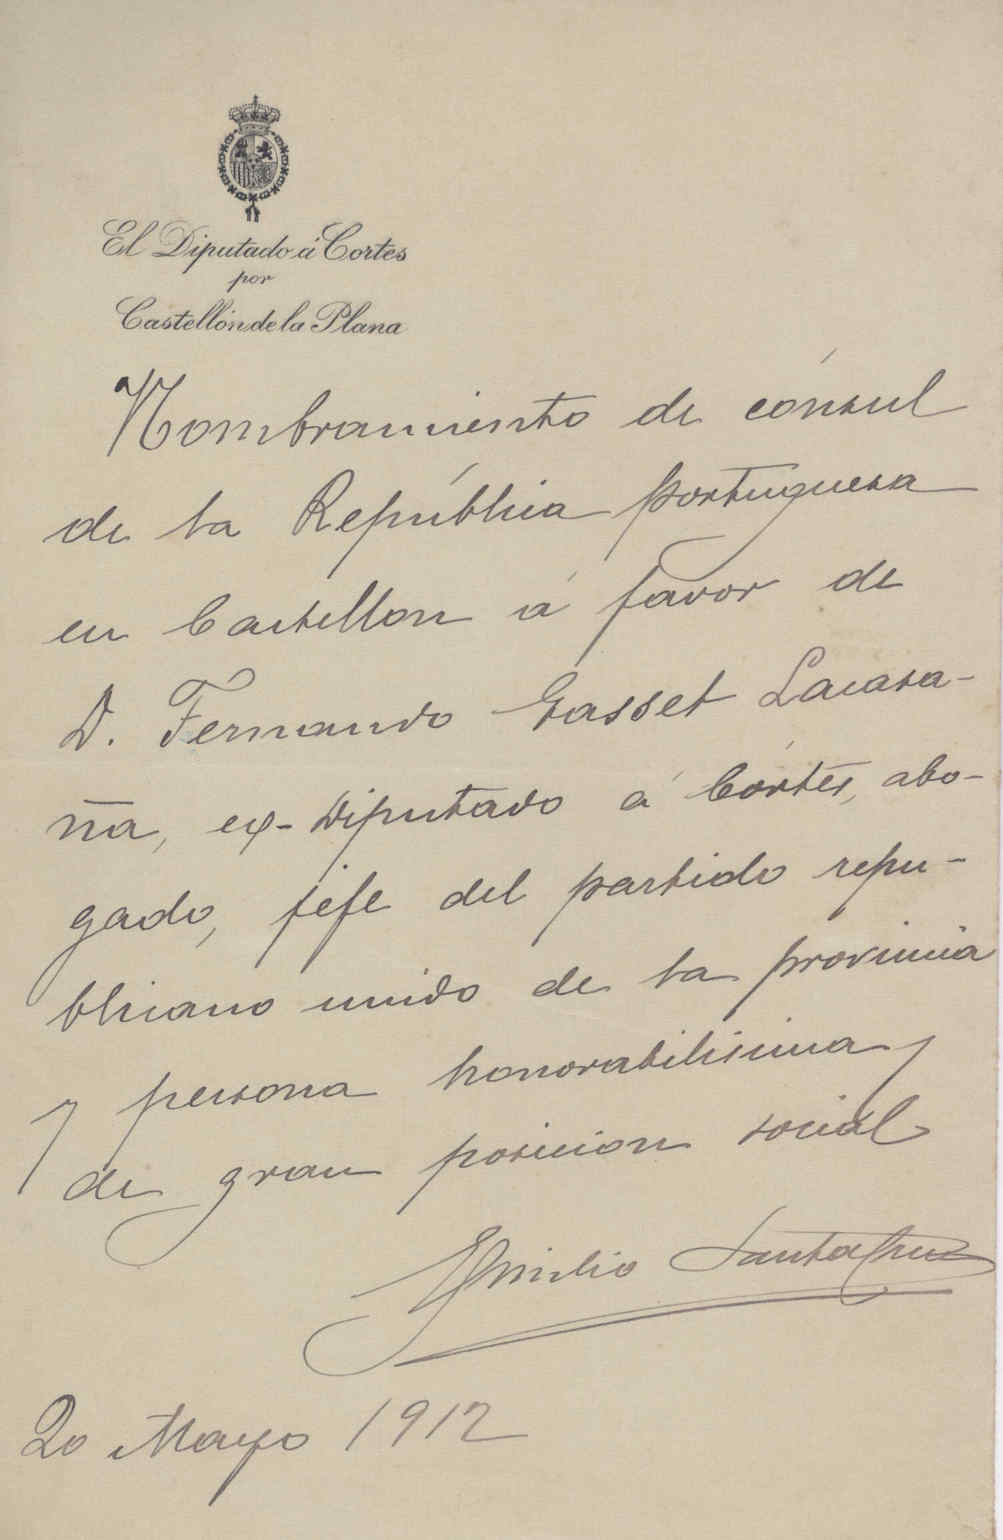 El Diputado á Cortes
por
Castellón de la Plana
Nombramiento de cónsul
de la República portuguesa
en Castellon á favor de
D. Fernando Gasset Lacasa-
ña, ex-Diputado á Córtes, abo-
gado, jefe del partido repu-
blicano unido de la provincia
y persona honorabilisima y
de gran posicion social
Emilio Santa Cruz
20 Mayo 1912